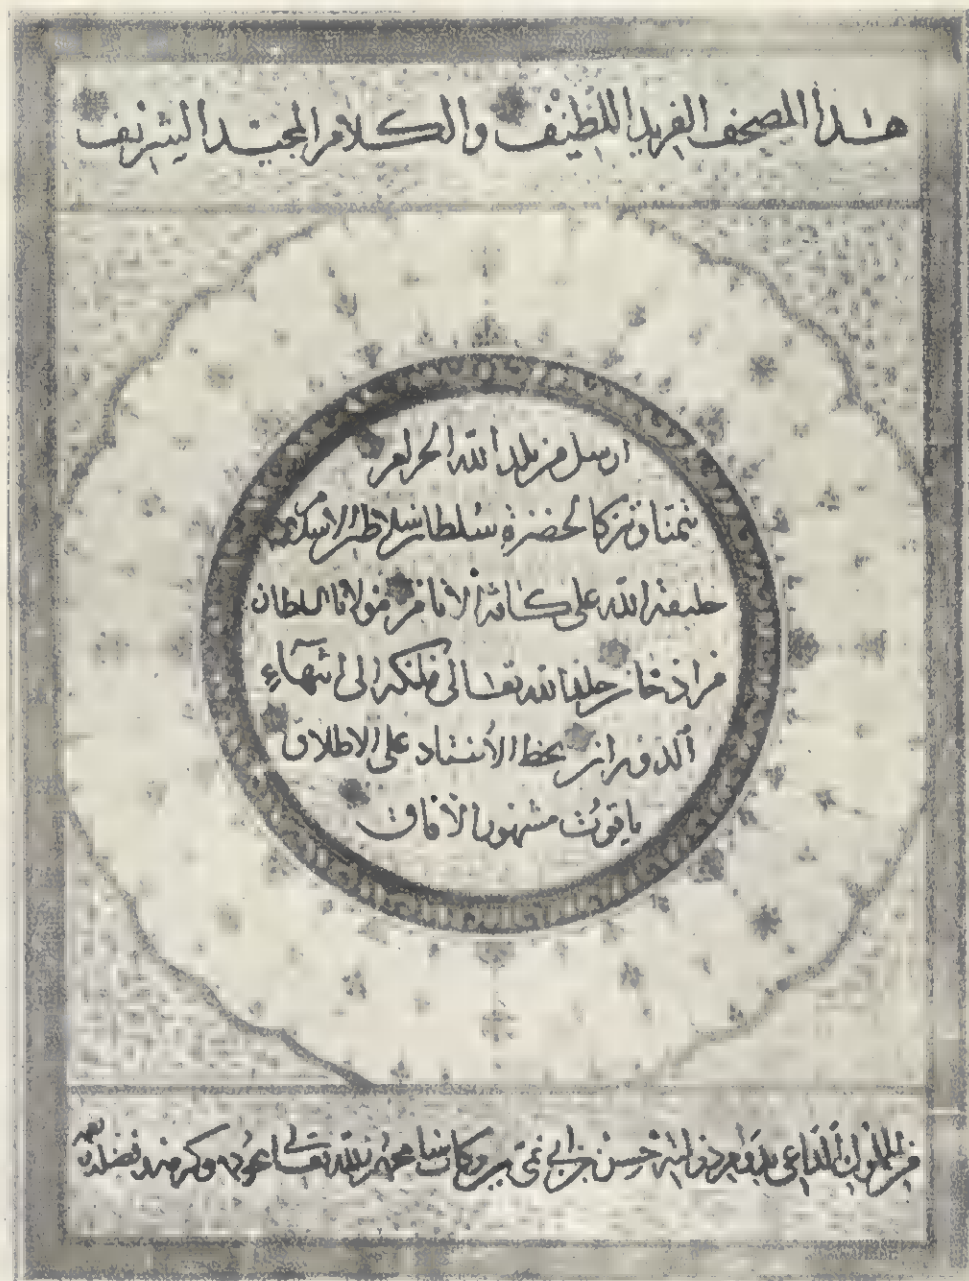 هذا المصحف الفريد اللطيف والكلام المجيد الشريف
ارسل من بلد الله الحرام
تيمنا وتبركا لحضرة سلطان سلاطين الاسلام
خليفة الله على كافة الانام مولانا السلطان
مراد خان خلد الله تعالى ملكه الى انتهاء
الدوران بخط الأستاد على الاطلاق
ياقوت مشهور الآفاق
من المملوك الداعي حسن بن ابي نمي بن بركات تعالى وكرمه